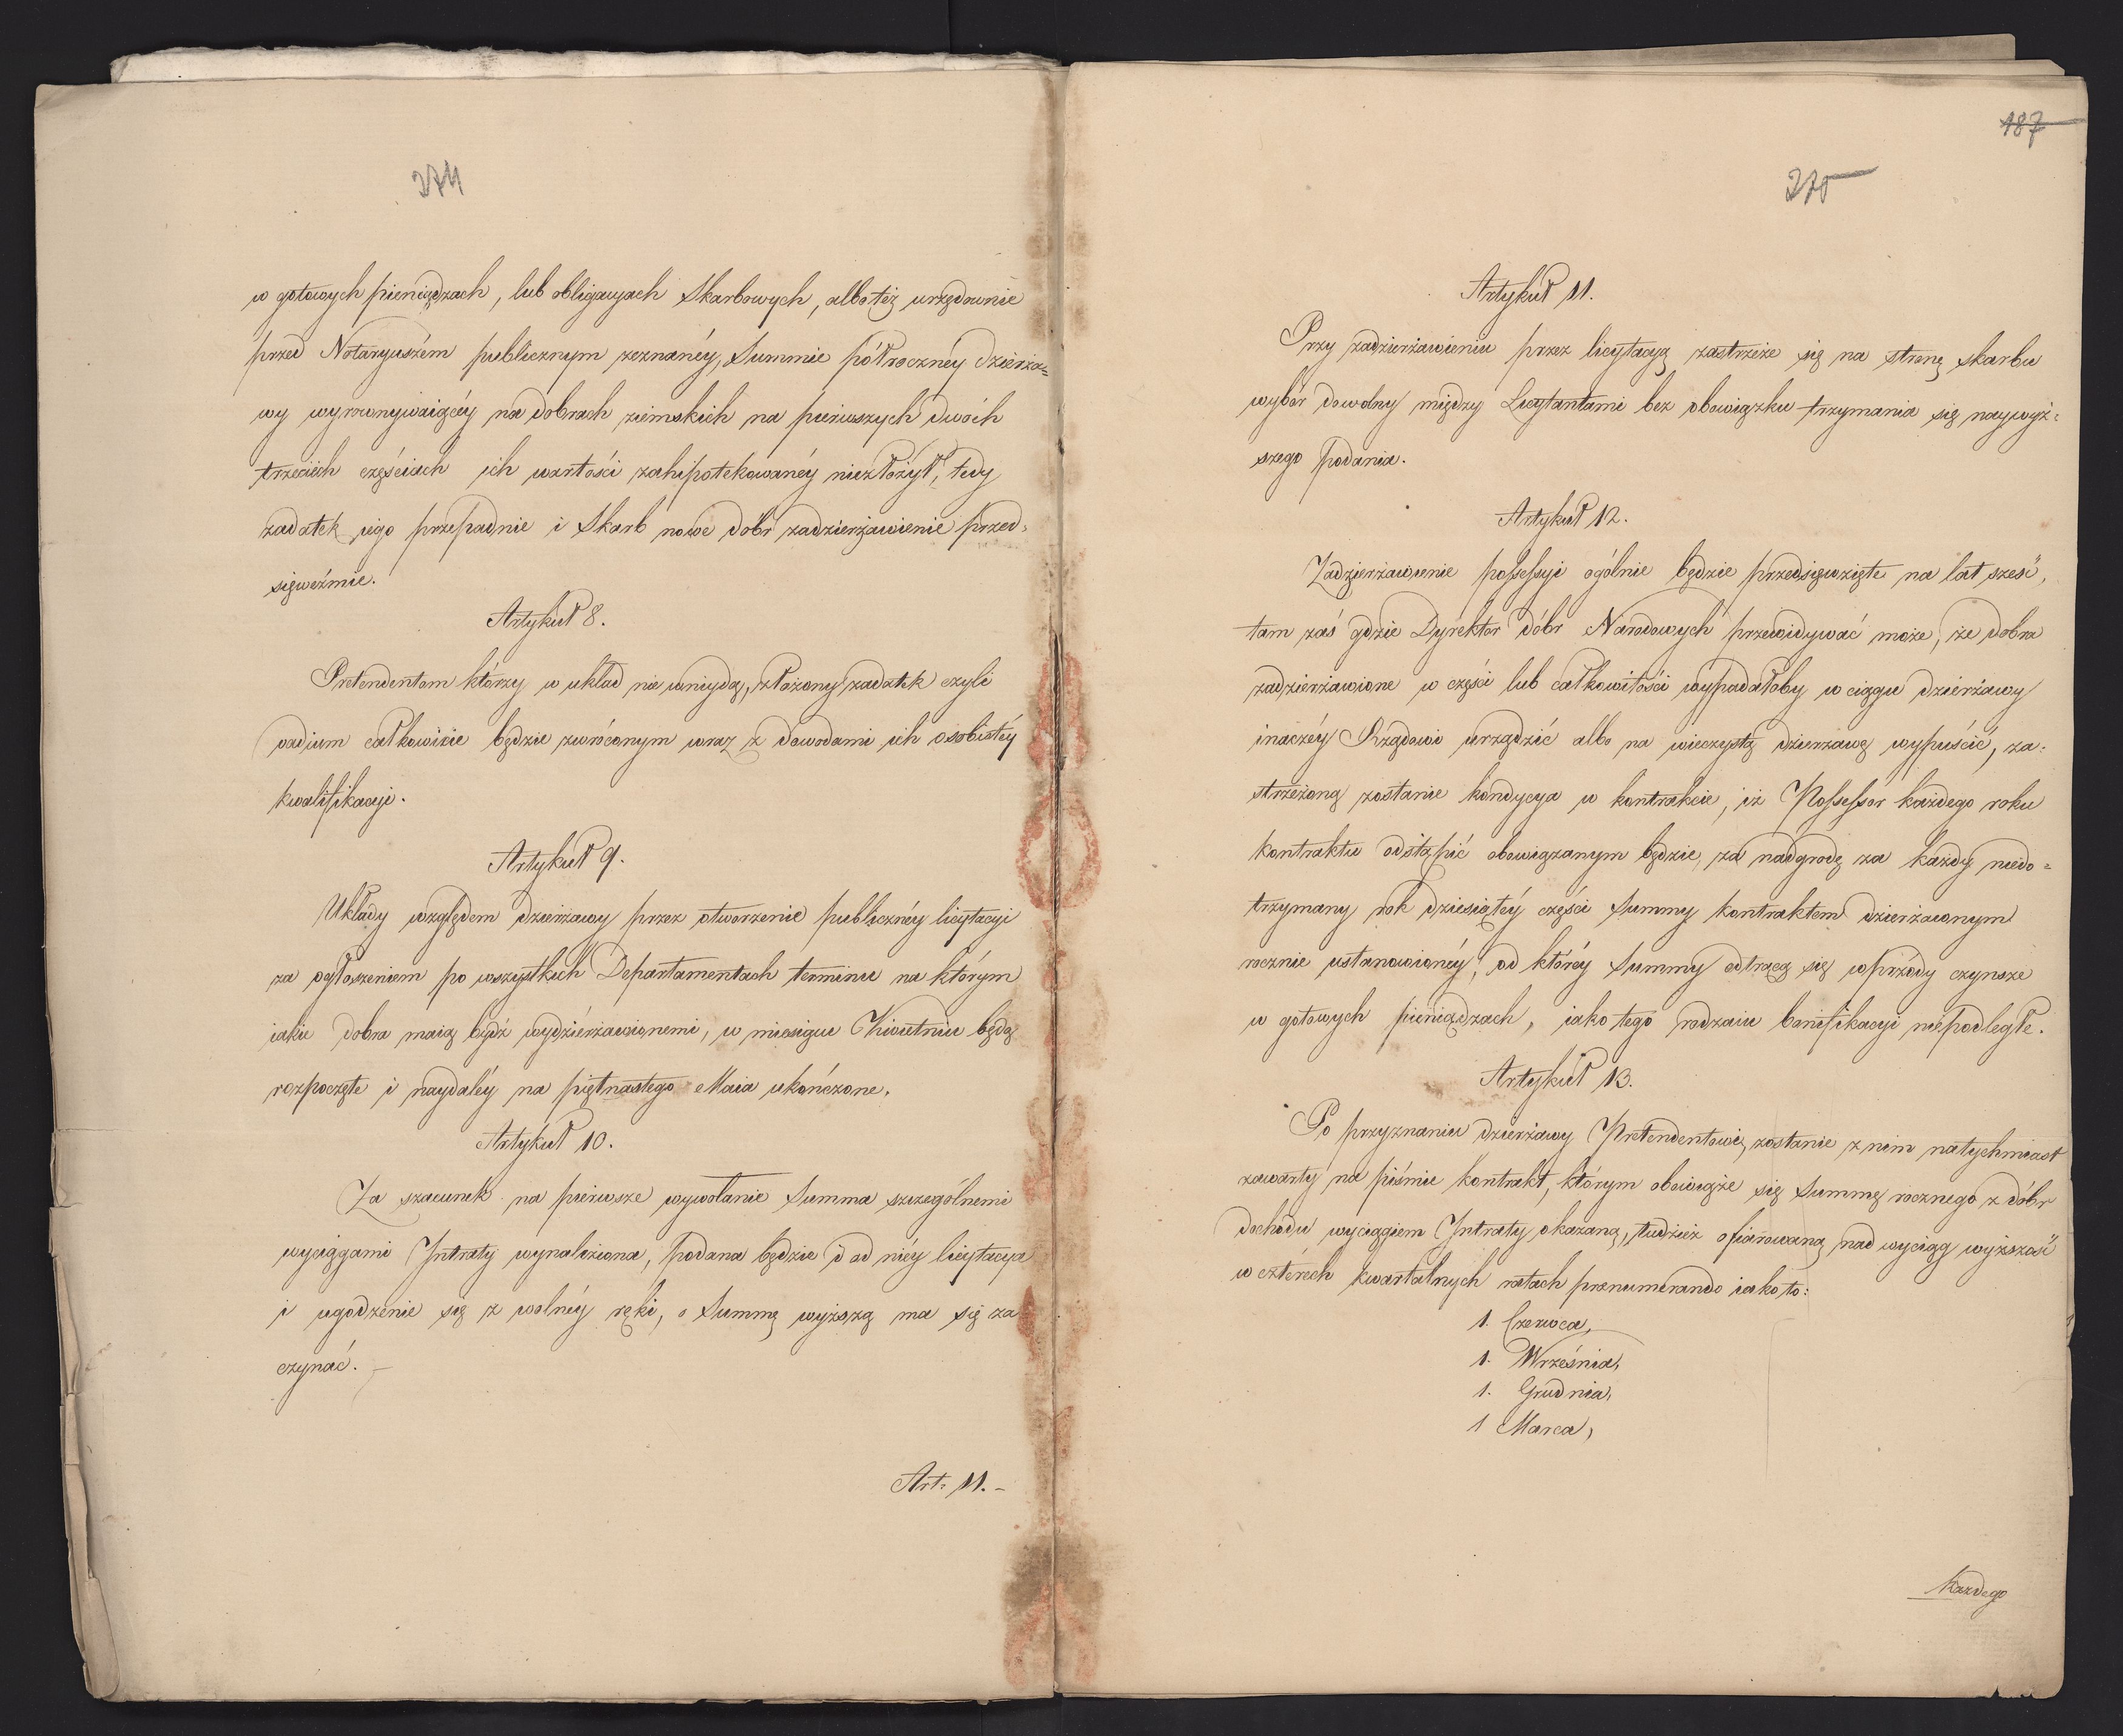 274
w gotowych pieniądzach, lub obligacyach Skarbowych, albo też urzędownie
przed Notaryuszem publicznym zeznanéy, Summie półroczney dzierża=
wy wyrownywaiącéy na dobrach ziemskich na pierwszych dwóch
trzecich częściach ich wartości zahipotekowanéy niezłożył, tedy
zadatek iego przepadnie i Skarb nowe dóbr zadzierżawienie przed=
sięweźmie.
Artykuł 8.
Pretendentom którzy w układ nie wniydą, złożony zadatek czyli
vadium całkowicie będzie zwróconym wraz z dowodami ich osobistéy
kwalifikacyi.
Artykuł 9.
Układy względem dzierżawy przez otworzenie publicznéy licytacyi
za ogłoszeniem po wszystkich Departamentach terminu na którym
iakie dobra maią bydź wydzierżawionemi, w miesiącu Kwietniu będą
rozpoczęte i naydaléy na piętnastego Maia ukończone.
Artykuł 10.
Za szacunek na pierwsze wywołanie Summa szczególnemi
wyciągami Intraty wynaleziona, podana będzie i od niéy licytacya
i ugodzenie się z wolnéy ręki, o Summę wyższą ma się za
czynać.
Art: 11.
187
275
Artykuł 11.
Przy zadzierżawieniu przez licytacyą zastrzeże się na stronę skarbu
wybór dowolny między Licytantami bez obowiązku trzymania się naywyż=
szego podania.
Artykuł 12.
Zadzierżawienie possessyi ogólnie będzie przedsięwzięte na lat sześć,
tam zaś gdzie Dyrektor dóbr Narodowych przewidywać może, że dobra
zadzierżawione w części lub całkowitości wypadałoby w ciągu dzierżawy
inaczéy Rządowi urządzić albo na wieczystą dzierżawę wypuścić, za=
strzeżoną zostanie kondycya w kontrakcie, iż Possessor każdego roku
kontraktu odstąpić obowiązanym będzie, za nadgrodą za każdy niedo=
trzymany rok dziesiątéy części Summy kontraktem dzierżawnym
rocznie ustanowionéy, od któréy Summy odtrącą się wprzódy czynsze
w gotowych pieniądzach, iako tego rodzaiu bonifikacyi niepodległe.
Artykuł 13.
Po przyznaniu dzierżawy Pretendentowi, zostanie z nim natychmiast
zawarty na piśmie kontrakt, którym obowiąże się Summę rocznego z dóbr
dochodu wyciągiem Intraty okazaną, tudzież ofiarowaną nad wyciąg wyższość
w czterech kwartalnych ratach prenumerando iako to:
1. Czerwca,
1. Września,
1. Grudnia,
1 Marca,
każdego